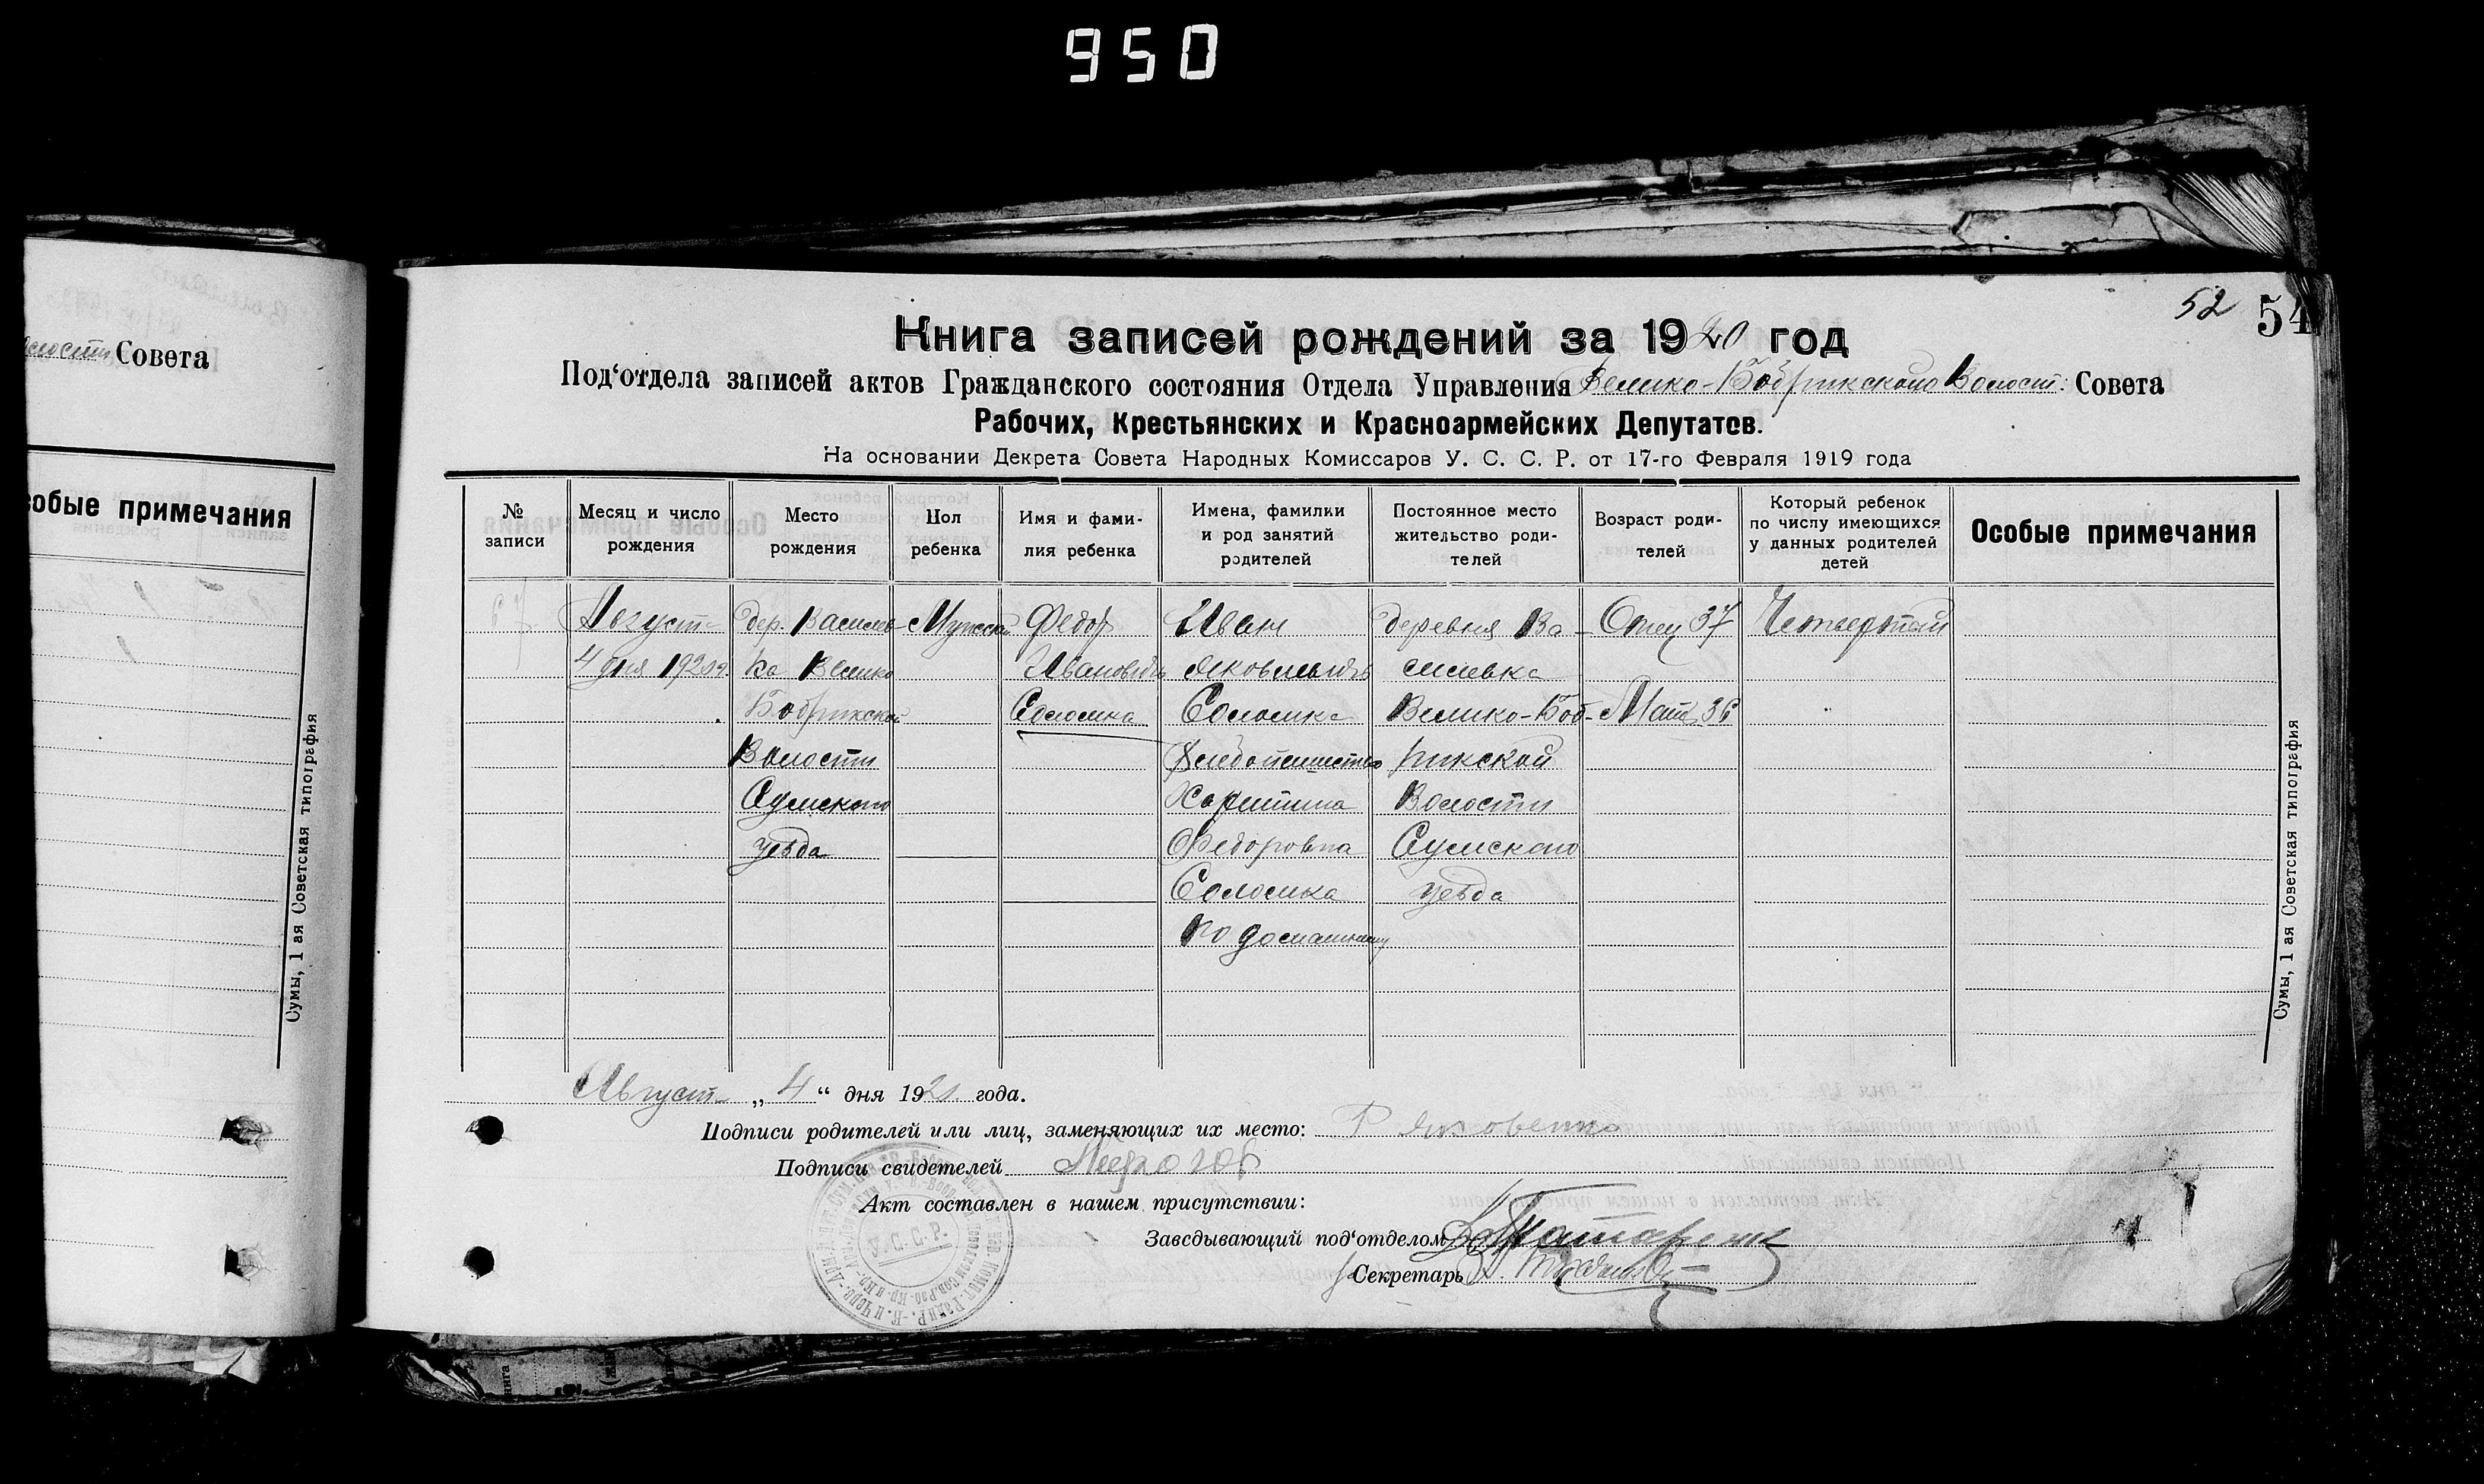 950
52 54
Книга записей рождений за 1920 год
Под‘отдела записей актов Гражданского состояния Отдела Управления Велико-Бобрикского Волост: Совета
Рабочих, Крестьянских и Красноармейских Депутатов.
На основании Декрета Совета Народных Комиссаров У. С. С. Р. от 17-го Февраля 1919 года
Совета
особые примечания
Сумы, 1 ая Советская типография
№
записи
Месяц и число
рождения
Место
рождения
Пол
ребенка
Имя и фами-
лия ребенка
Имена, фамилки
и род занятий
родителей
Постоянное место
жительство роди-
телей
Возраст роди-
телей
Который ребенок
по числу имеющихся
у данных родителей
детей
Особые примечания
67
Август
4 дня 1920г.
дер. Василев-
ка Велико
Бобрикской
Волости
Сумского
уезда
Мужской
Федор
Ивановичъ
Солошка
Иван
Яковлевичъ
Солошка
Хлебопашество
Харитина
Федоровна
Солошка
по домашнему
деревня Ва-
силевка
Велико-Боб-
рикской
Волости
Сумского
уезда
Отец 37
Мать 36
Четвертый
Сумы, 1 ая Советская типография
Август „ 4 “ дня 192 года.
Подписи родителей или лиц, заменяющих их место: Яковенко
Подписи свидетелей
Акт составлен в нашем присутствии:
Заведывающий под‘отделом
Секретарь
У. С. С. Р.